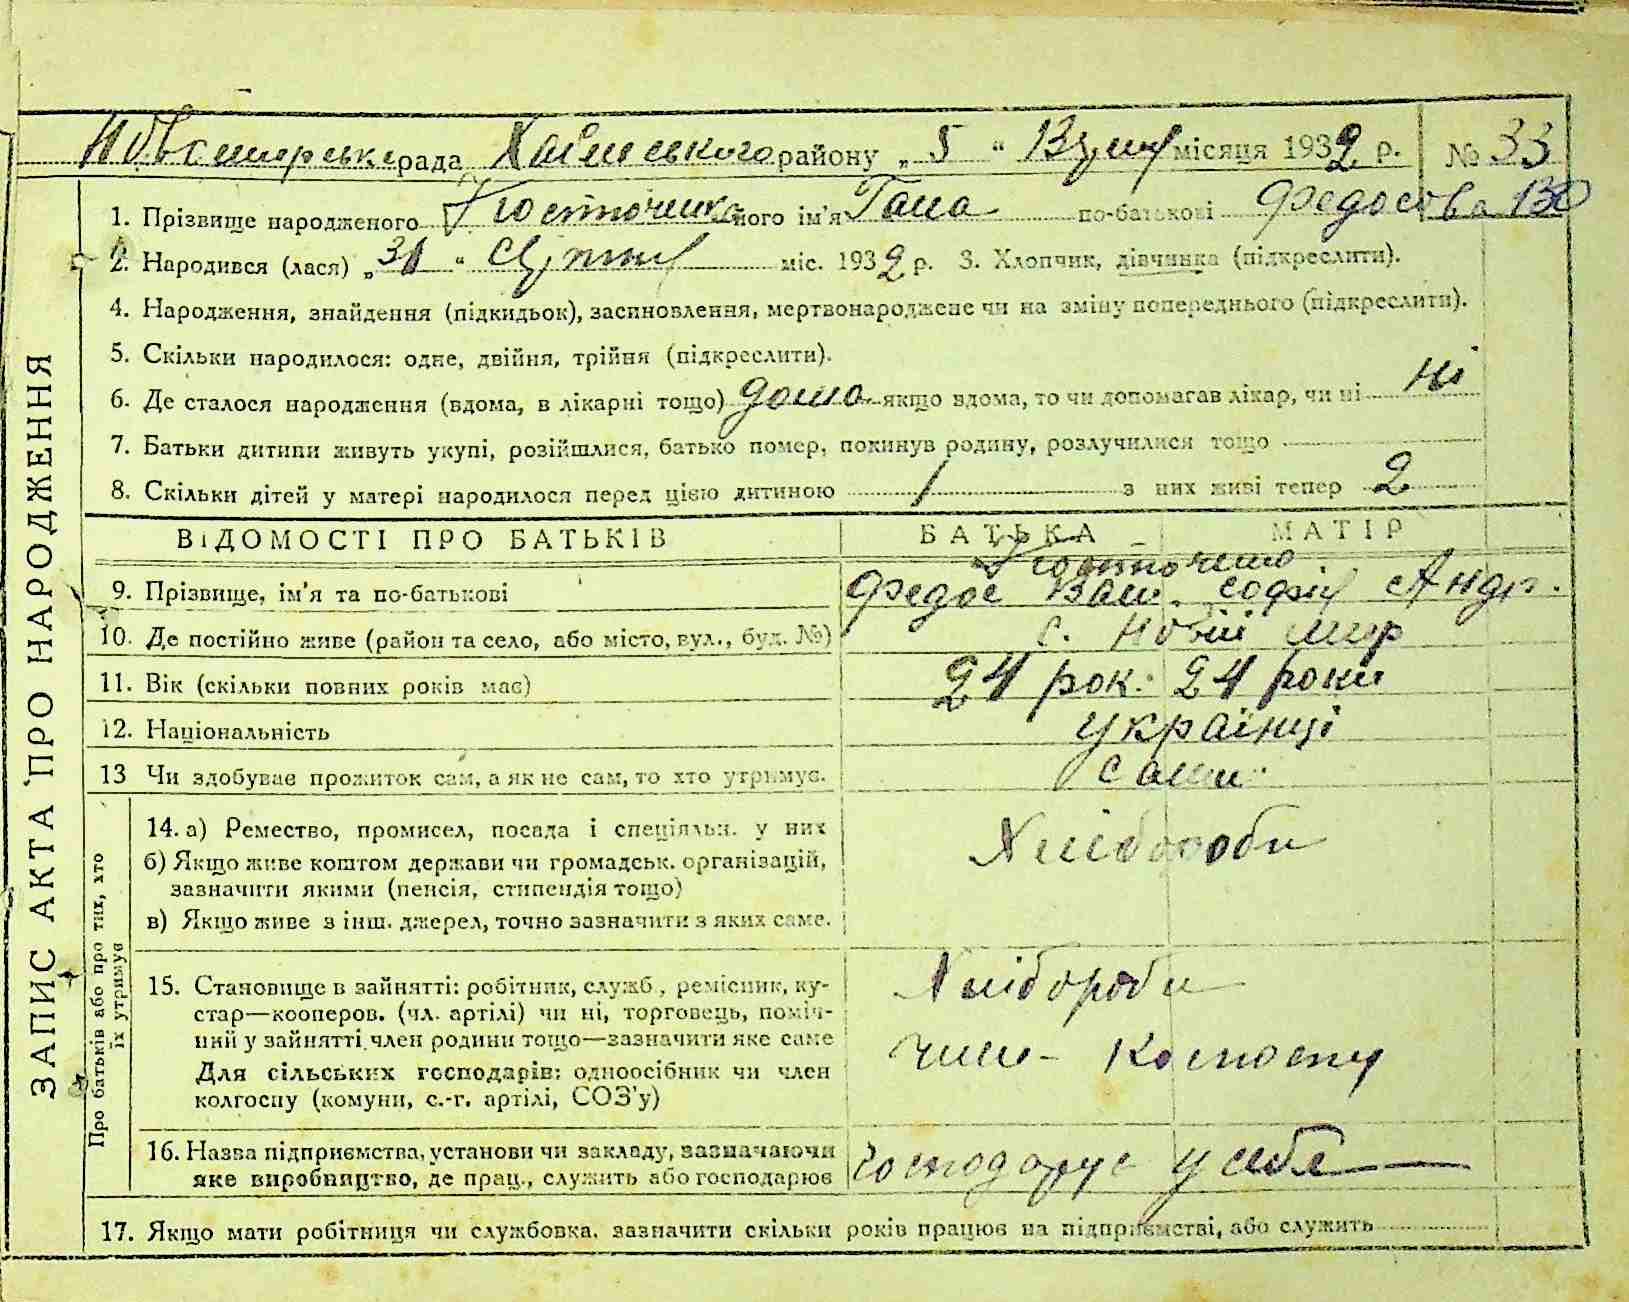 рада району „5“ місяця 1932 р. № 33
1. Прізвище народженого Костюченко його ім'я Гана по-батькові Федосова 130
2. Народився (лася) „31“ серпня міс. 1932 р. 3. Хлопчик, дівчинка (підкреслити).
4. Народження, знайдення (підкидьок), засиновлення, мертвонароджене чи на зміну попереднього (підкреслити).
5. Скільки народилося: одне, двійня, трійня (підкреслити).
6. Де сталося народження (вдома, в лікарні тощо) дома якщо вдома, то чи допомагав лікар, чи ні ні
7. Батьки дитини живуть укупі, розійшлися, батько помер, покинув родину, розлучилися тощо
8. Скільки дітей у матері народилося перед цією дитиною 1 з них живі тепер 2
ВІДОМОСТІ ПРО БАТЬКІВ БАТЬКА МАТІР
9. Прізвище, ім'я та по-батькові Федос Софія Андр.
10. Де постійно живе (район та село, або місто, вул., буд. №) с. Новий мир
11. Вік (скільки повних років має) 24 рок. 24 роки
12. Національність українці
13 Чи здобуває прожиток сам, а як не сам, то хто утримує. сами
14. а) Ремество, промисел, посада і спеціяльн. у них Хлібороби
б) Якщо живе коштом держави чи громадськ. організацій,
зазначити якими (пенсія, стипендія тощо)
в) Якщо живе з інш. джерел, точно зазначити з яких саме.
15. Становище в зайнятті: робітник, служб., ремісник, ку- Хлібороби
стар—кооперов. (чл. артілі) чи ні, торговець, поміч-
ний у зайнятті член родини тощо—зазначити яке саме
Для сільських господарів: одноосібник чи член
колгоспу (комуни, с.-г. артілі, СОЗ'у)
16. Назва підприємства, установи чи закладу, зазначаючи
яке виробництво, де прац., служить або господарює господарує у себе
17. Якщо мати робітниця чи службовка, зазначити скільки років працює на підприємстві, або служить
ЗАПИС АКТА ПРО НАРОДЖЕННЯ
Про батьків або про тих, хто
їх утримує